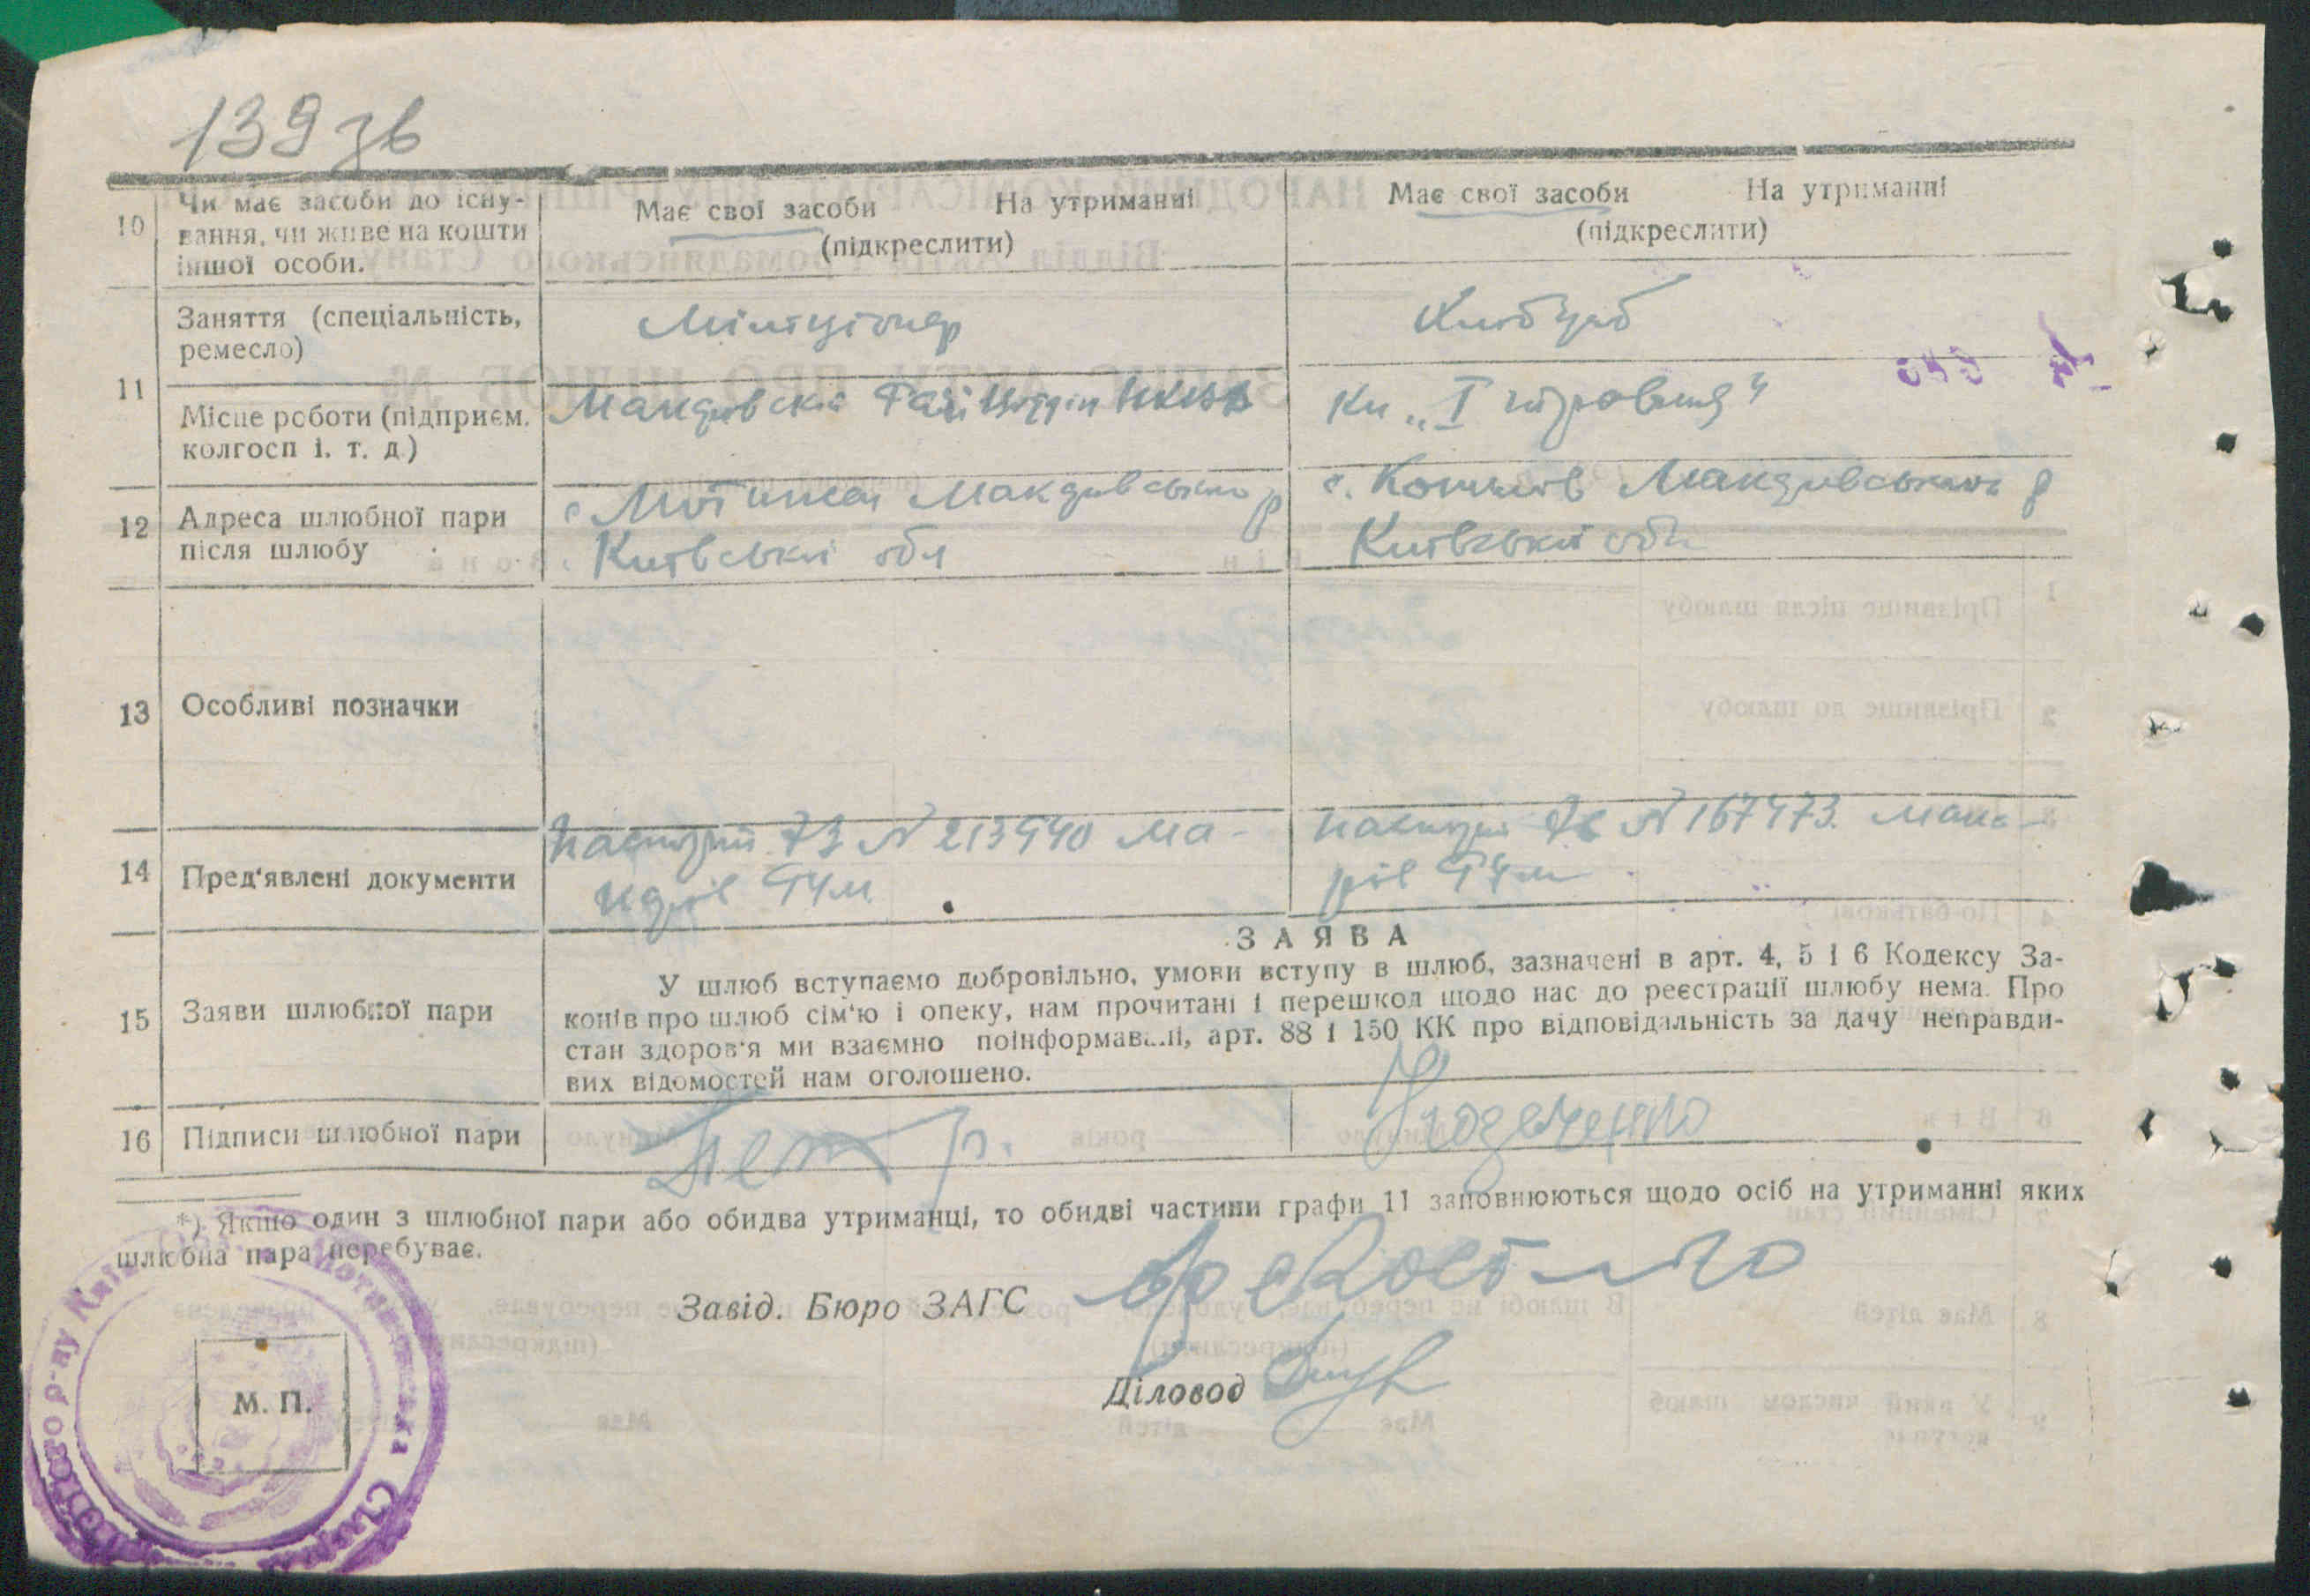 139 зв
10 Чи має засоби до існу-
вання, чи живе на кошти
іншої особи.
Має свої засоби На утриманні
(підкреслити)
Має свої засоби На утриманні
(підкреслити)
11 Заняття (спеціальність,
ремесло)
Міліціонер
Місце роботи (підприєм.
колгосп і. т. д.)
Макарівський Рай НКВД
кп „І
12 Адреса шлюбної пари
після шлюбу
с Мотижин Макарівського р
Київської обл
с. Макарівського р
Київської обл
13 Особливі позначки
14 Пред'явлені документи
Паспорт N 213940 Ма-
карів
Паспорт N 167473. Мака-
рів
15 Заяви шлюбної пари
ЗАЯВА
У шлюб вступаємо добровільно, умови вступу в шлюб, зазначені в арт. 4, 5 і 6 Кодексу За-
конів про шлюб сім'ю і опеку, нам прочитані і перешкод щодо нас до реєстрації шлюбу нема. Про
стан здоров'я ми взаємно поінформавалі, арт. 88 і 150 КК про відповідальність за дачу неправди-
вих відомостей нам оголошено.
16 Підписи шлюбної пари
*) Якщо один з шлюбної пари або обидва утриманці, то обидві частини графи 11 заповнюються щодо осіб на утриманні яких
шлюбна пара перебуває.
Завід. Бюро ЗАГС
Діловод
М. П.